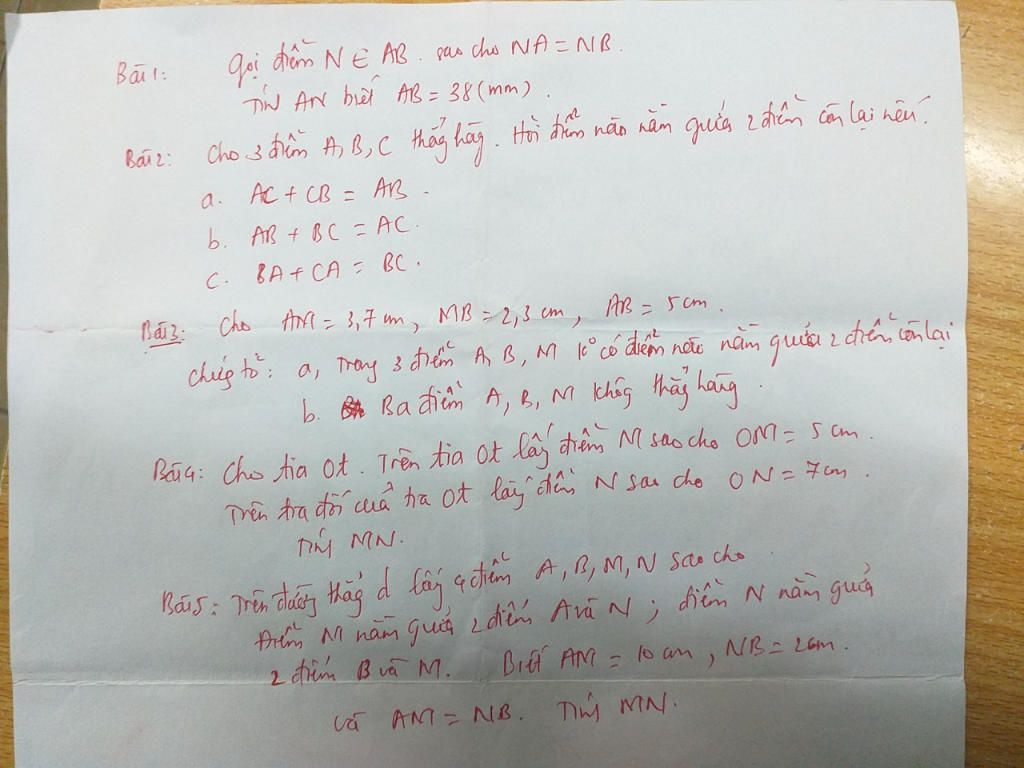 Bài 1: Gọi điểm N ∈ AB. sao cho NA = NB.
Tính AN biết AB = 38 (mm).
Bài 2: Cho 3 điểm A, B, C thẳng hàng. Hỏi điểm nào nằm giữa 2 điểm còn lại nếu:
a. AC + CB = AB.
b. AB + BC = AC.
c. BA + CA = BC.
Bài 3: Cho AM = 3,7 cm, MB = 2,3 cm, AB = 5 cm.
chứng tỏ: a, Trong 3 điểm A, B, M K° có điểm nào nằm giữa 2 điểm còn lại
b. Ba điểm A, B, M không thẳng hàng.
Bài 4: Cho tia Ot. Trên tia Ot lấy điểm M sao cho OM = 5 cm.
Trên tia đối của tia Ot lấy điểm N sao cho ON = 7 cm.
Tính MN.
Bài 5: Trên đường thẳng d lấy 4 điểm A, B, M, N sao cho
điểm M nằm giữa 2 điểm A và N; điểm N nằm giữa
2 điểm B và M. Biết AM = 10 cm, NB = 2 cm.
và AM = NB. Tính MN.